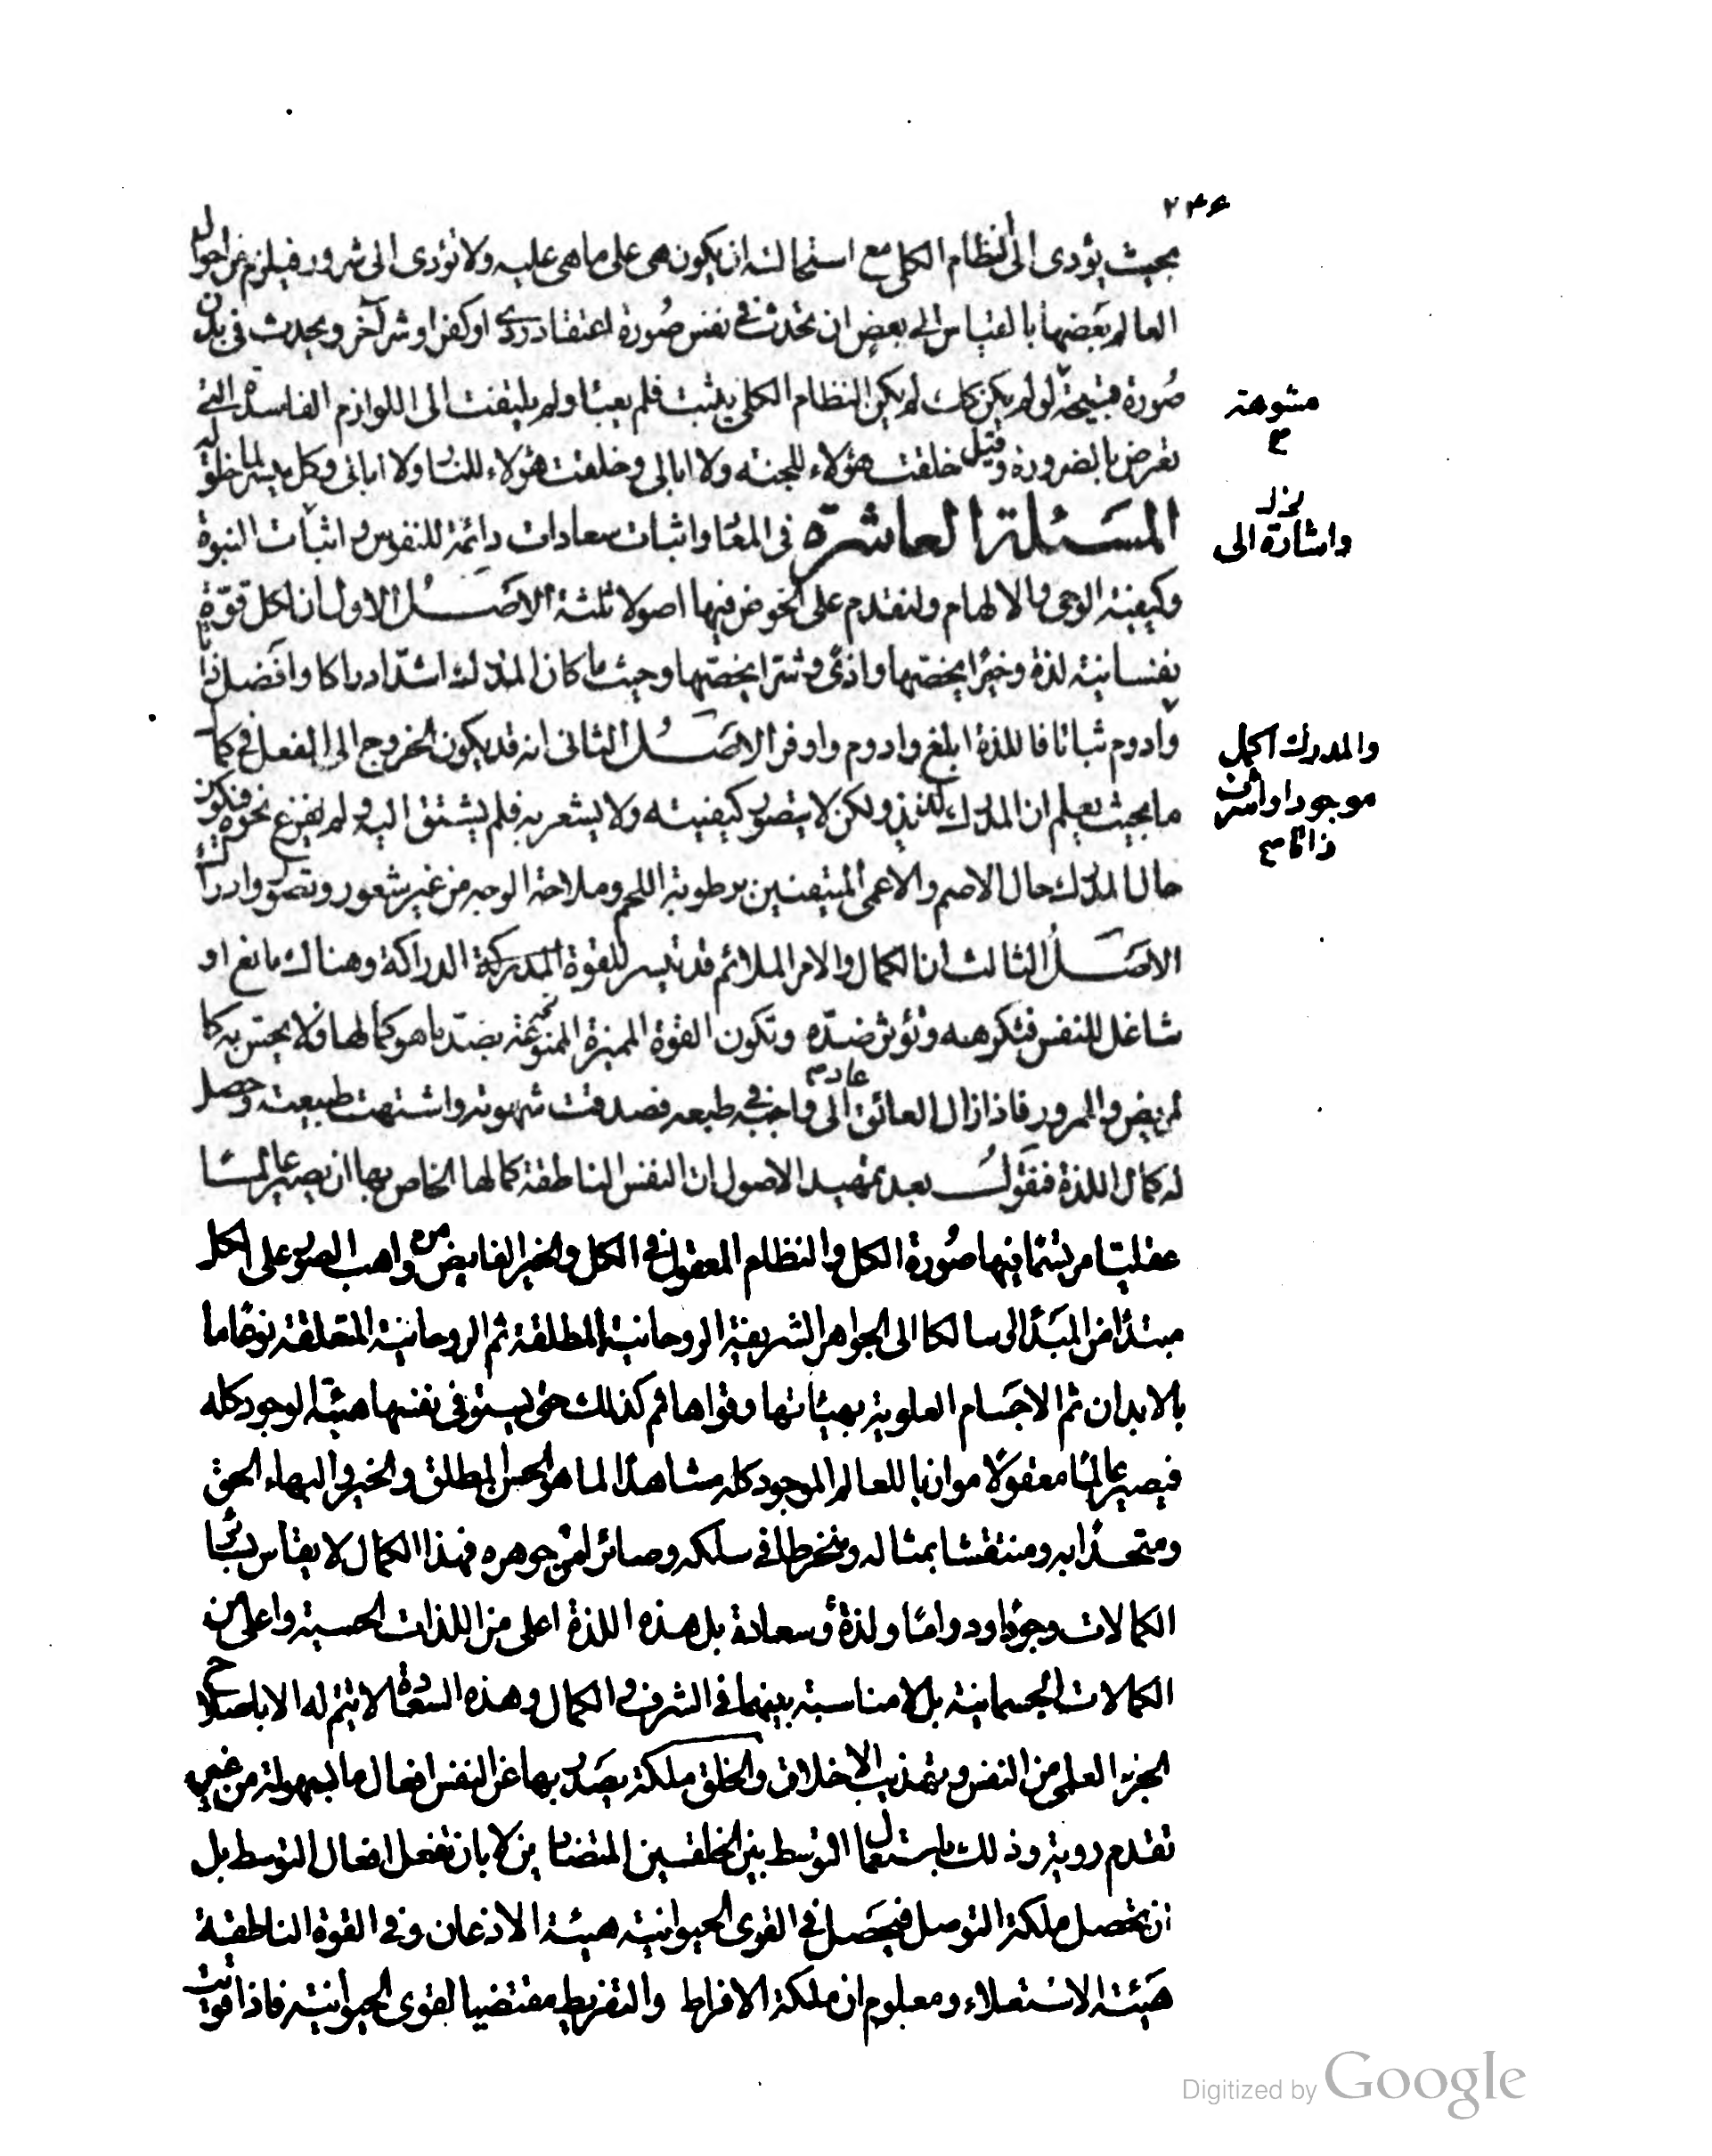 ٢٣۶
بحيث يؤدى الى النظام الكلى مع استحالته ان يكون هى على ما هى عليه ولا تؤدى الى شرور فيلزم من احوال
العالم بعضها بالقياس الى بعض ان تحدث فى نفس صورة اعتقاد ردى او كفر او شر آخر ويحدث فى بدن
صورة قبيحة لو لم يكن كك لم يكن النظام الكلى يثبت فلم يعبأ ولم يلتفت الى اللوازم الفاسدة التى
مشوهة
تعرض بالضرورة وقيل خلقت هؤلاء للجنة ولا ابالى وخلقت هؤلاء للنار ولا ابالى وكل ميسر لما خلق له
المسئلة العاشرة فى المعاد واثبات سعادات دائمة للنفوس واثبات النبوة
واشارة الى
وكيفية الوحى والالهام ولنقدم على الخوض فيها اصولا ثلثة الاصل الاول ان لكل قوة
نفسانية لذة وخيرا يخصها واذى وشرا يخصها وحيث ما كان المدرك اشد ادراكا وافضل ذاتا
وادوم ثباتا فاللذة ابلغ وادوم واوفر الاصل الثانى انه قد يكون الخروج الى الفعل فى كمال
والمدرك اكمل
موجودا واشرف
ذاتا
ما بحيث يعلم ان المدرك لذيذ ولكن لا يتصور كيفيته ولا يشعر به فلم يشتق اليه ولم يفزع نحوه فيكون
حال المدرك حال الاصم والاعمى المتيقنين برطوبة اللحم وملاحة الوجه من غير شعور وتصور وادراك
الاصل الثالث ان الكمال والامر الملائم قد تيسر للقوة المدركة الدراكة وهناك مانع او
شاغل للنفس فتكرهه وتؤثر ضده وتكون القوة المميزة الممنوعة بضد ما هو كمالها فلا يحس به كا
لمريض والممرور فاذا زال العائق عاد الى واجبه فى طبعه فصدقت شهوته واشتهت طبيعته وحصل
له كمال اللذة فنقول بعد تمهيد الاصول ان النفس الناطقة كمالها الخاص بها ان يصير عالما
عقليا مرتسما فيها صورة الكل والنظام المعقول فى الكل والخير الفايض من واهب الصور على الكل
مبتدأ من المبدأ الى سالكا الى الجواهر الشريفة الروحانية المطلقة ثم الروحانية المتعلقة نوعا ما
بالابدان ثم الاجسام العلوية بهيئاتها وقواها ثم كذلك حتى يستوفى نفسها هيئة الوجود كله
فيصير عالما معقولا موازيا للعالم الموجود كله مشاهدا لما هو الحسن المطلق والخير والبهاء الحق
ومتحدا به ومنتقشا بمثاله ومنخرطا فى سلكه وصائرا من جوهره فهذا الكمال لا يقاس بسائر
الكمالات وجودا ودواما ولذة وسعادة بل هذه اللذة اعلى من اللذات الحسية واعلى من
الكمالات الجسمانية بل لا مناسبة بينهما فى الشرف والكمال وهذه السعادة لا تتم له الا باصلاح
الجزء العلمى من النفس وتهذيب الاخلاق والخلق ملكة يصدر بها عن النفس افعال ما بسهولة من غير
تقدم روية وذلك باستعمال التوسط بين الخلقين المتضادين لا بان تفعل افعال التوسط بل
ان تحصل ملكة التوصل فيحصل فى القوى الحيوانية هيئة الاذعان وفى القوة الناطقة
هيئة الاستعلاء ومعلوم ان ملكة الافراط والتفريط مقتضيا لقوى الحيوانية فاذا قويت
Digitized by Google